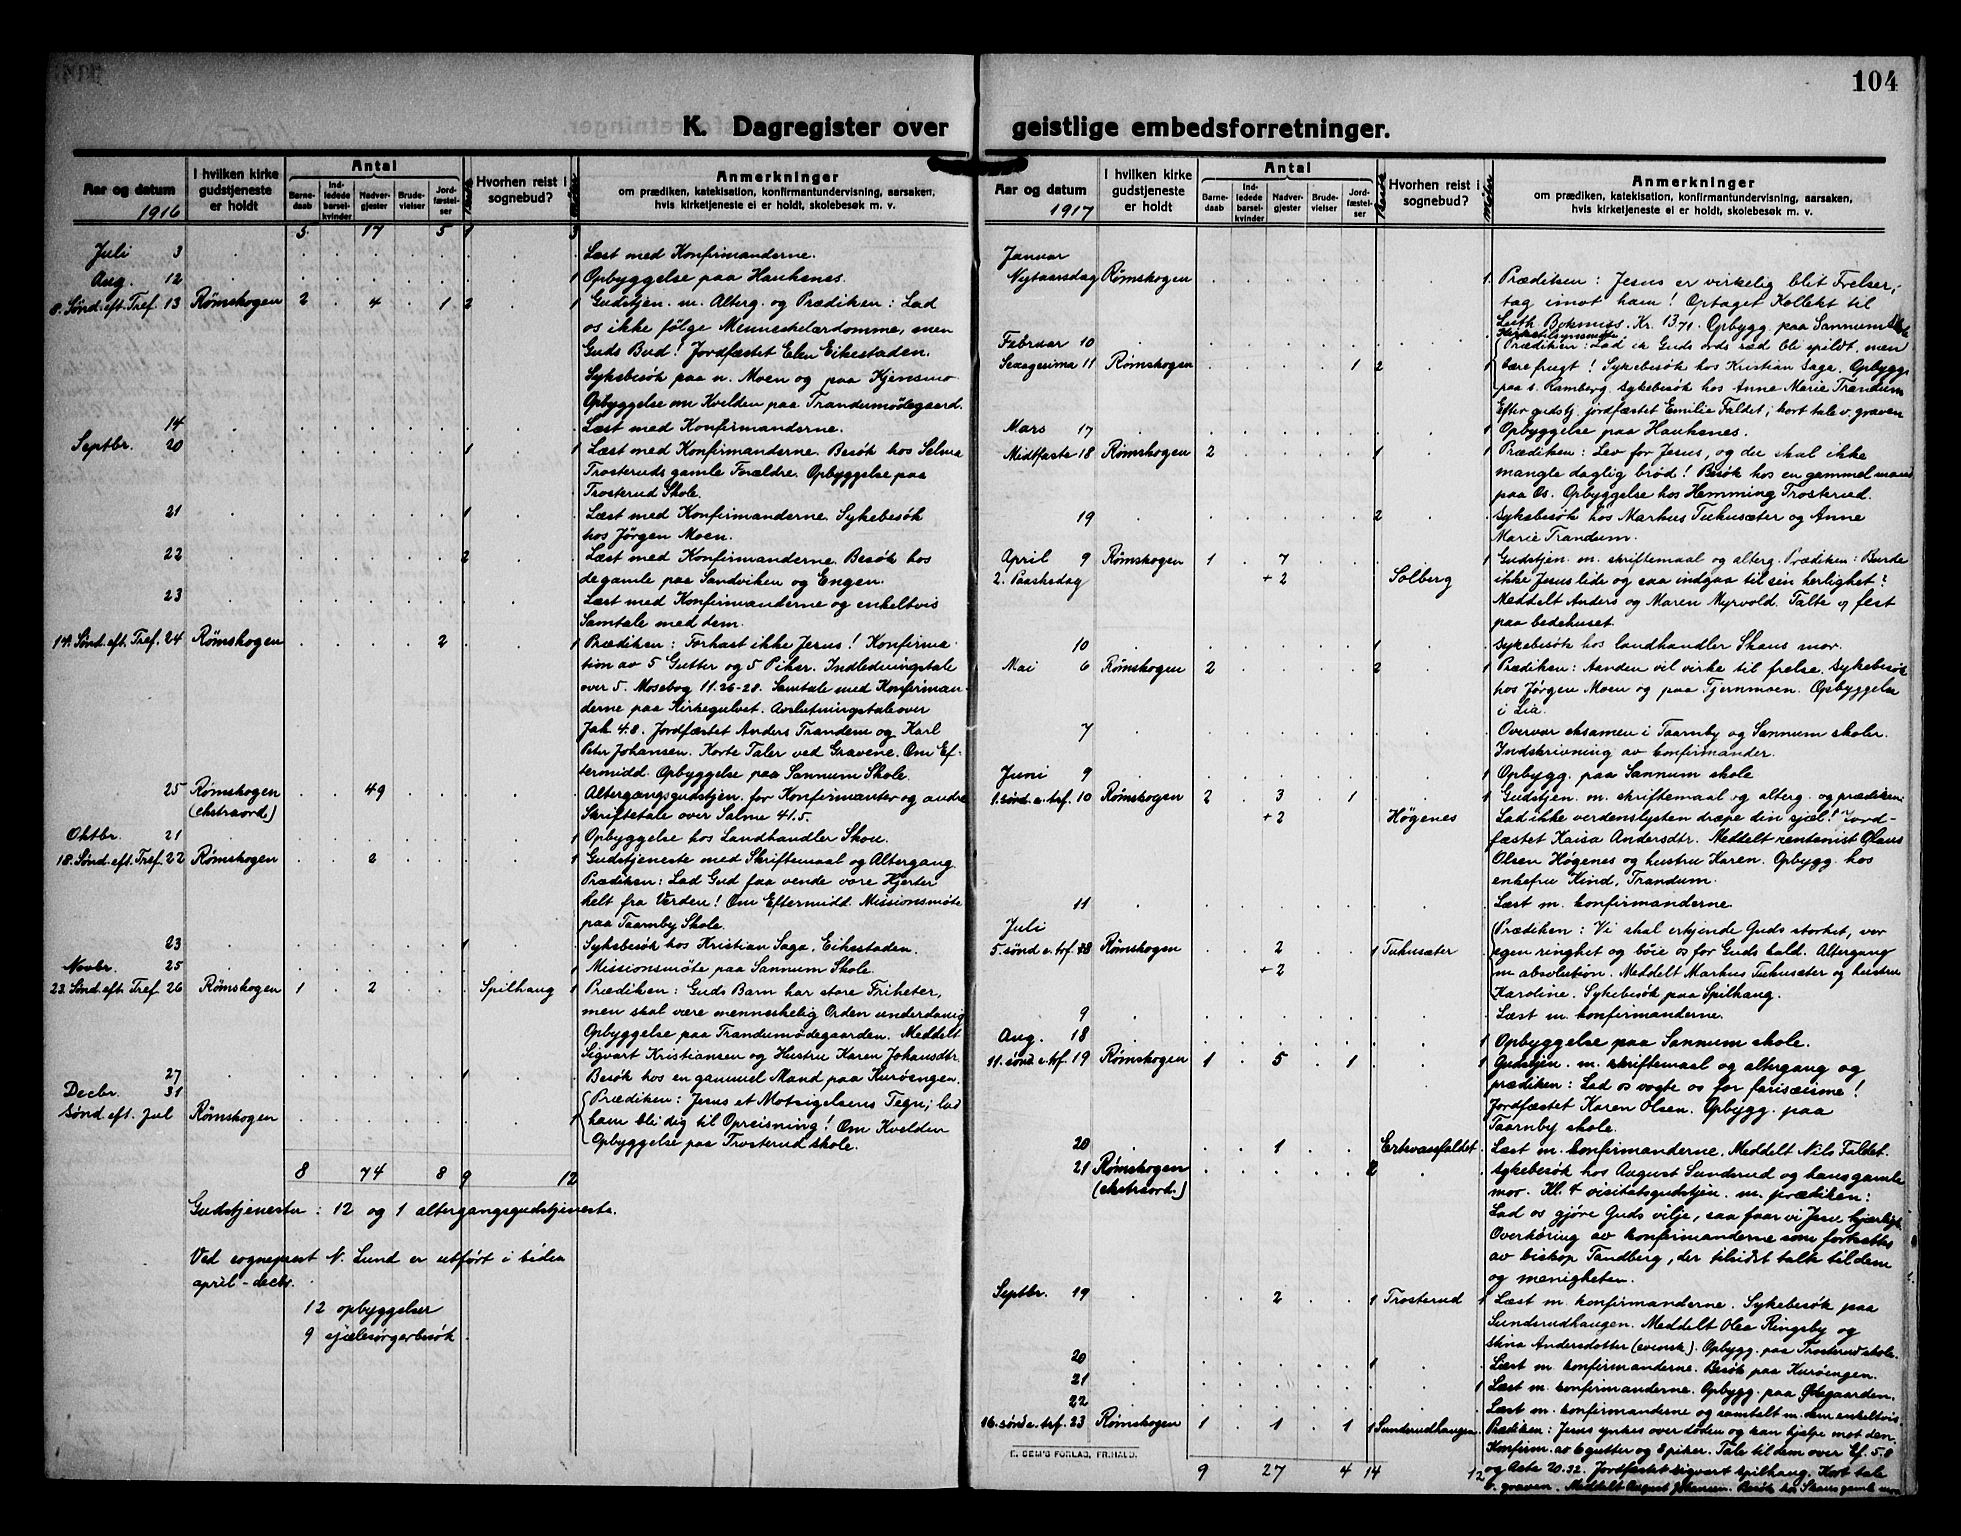 104
K. Dagregister over geistlige embedsforretninger.
Aar og datum
1916
I hvilken kirke gudstjeneste er holdt
Antal
Barnedaab
Indledede barselkvinder
Nadvergjester
Brudevielser
Jordfæstelser
Besøk
Hvorhen reist i sognebud?
Møter
Anmerkninger
om prædiken, katekisation, konfirmantundervisning, aarsaken,
hvis kirketjeneste ei er holdt, skolebesøk m. v.
5 17 5 1 3
Juli 3 Læst med Konfirmanderne.
Aug. 12 1 Opbyggelse paa Hauksnes.
8. Sønd. eft. Tref. 13 Rømskogen 2 4 1 2 1 Gudstjen. m. Alterg. og Prædiken: Lad
os ikke følge Menneskelærdomme, men
Guds Bud! Jordfæstet Elen Eikestaden.
Sykebesøk paa n. Moen og paa Kjensmo
Opbyggelse om Kvelden paa Trandumødegaard.
14 Læst med Konfirmanderne.
Septbr. 20 1 1 Læst med Konfirmanderne. Besøk hos Selma
Trosteruds gamle Forældre. Opbyggelse paa
Trosterud Skole.
21 1 Læst med Konfirmanderne. Sykebesøk
hos Jørgen Moen.
22 2 Læst med Konfirmanderne. Besøk hos
de gamle paa Sandviken og Engen.
23 Læst med Konfirmanderne og enkeltvis
Samtale med dem.
14. Sønd. eft. Tref. 24 Rømskogen 2 1 Prædiken: Forhast ikke Jerus! Konfirma-
tion av 5 Gutter og 5 Piker. Indledningstale
over 5. Mosebog 11.26-28. Samtale med Konfirman-
derne paa Kirkegulvet. Avslutningstale over
Jak. 4.8. Jordfæstet Anders Trandem og Karl
Peter Johansen. Korte Taler ved Gravene. Om Ef-
termidd. Opbyggelse paa Sannum Skole.
25 Rømskogen 49 Altergangsgudstjen. for Konfirmanter og andre
(ekstraord.) Skriftetale over Salme 41.5.
Oktbr. 21 1 Opbyggelse hos Landhandler Skou.
18. Sønd. eft. Tref. 22 Rømskogen 2 1 Gudstjeneste med Skriftemaal og Altergang.
Prædiken: Lad Gud faa vende vore Hjerter
helt fra Verden! Om Eftermidd. Missionsmøte
paa Taarnby Skole.
23 1 Sykebesøk hos Kristian Saga, Eikestaden.
Novbr. 25 1 Missionsmøte paa Sannum Skole.
23. Sønd. eft. Tref. 26 Rømskogen 1 2 Spilhaug 1 Prædiken: Guds Barn har store Friheter,
men skal være menneskelig Orden underdanig
Opbyggelse paa Trandumødegaarden. Meddelt
Sigvart Kristiansen og Hustru Karen Johansdtr.
27 1 Besøk hos en gammel Mand paa Kurøengen.
Decbr. 31 Prædiken: Jesus et Motsigelsens Tegn; lad
Sønd. eft. Jul Rømskogen 1 ham bli dig til Opreisning! Om Kvelden
Opbyggelse paa Trosterud skole.
8 74 8 9 12
Gudstjenester: 12 og 1 altergangsgudstjeneste.
Ved sogneprest N. Lund er utført i tiden
april - decbr.
12 opbyggelser
9 sjælesørgerbesøk
Aar og datum
1917
I hvilken kirke gudstjeneste er holdt
Antal
Barnedaab
Indledede barselkvinder
Nadvergjester
Brudevielser
Jordfæstelser
Besøk
Hvorhen reist i sognebud?
Møter
Anmerkninger
om prædiken, katekisation, konfirmantundervisning, aarsaken,
hvis kirketjeneste ei er holdt, skolebesøk m. v.
Januar
Nytaarsdag Rømskogen 1 Prædiken: Jesus er virkelig blit Frelser;
tag imot ham! Optaget Kollekt til
Luth. Bokmiss. Kr. 13.71. Opbygg. paa Sannum Skole
Februar 10 Kirketilsynsmøte
Sexagesima 11 Rømskogen 1 2 1 Prædiken: Lad ei Guds ords sæd bli spildt, men
bære frugt! Sykebesøk hos Kristian Saga. Opbygg.
paa s. Ramberg. Sykebesøk hos Anne Marie Trandum
Efter gudstj. jordfæstet Emilie Faldet; kort tale v. graven
Mars 17 1 Opbyggelse paa Hauksnes.
Midtfaste 18 Rømskogen 2 1 1 Prædiken: Lev for Jesus, og der skal ikke
mangle daglig brød! Besøk hos en gammel mand
paa Os. Opbyggelse hos Hemming Trosterud.
19 2 Sykebesøk hos Markus Tukusæter og Anne
Marie Trandum.
April 9 Rømskogen 1 7 1 Gudstjen. m. skriftemaal og alterg. Prædiken: Burde
2. Paaskedag + 2 Solberg ikke Jesus lide og saa indgaa til sin herlighet?
Meddelt Anders og Maren Myrvold. Talte og fest
paa bedehuset.
10 1 Sykebesøk hos landhandler Skaus mor.
Mai 6 Rømskogen 2 2 1 Prædiken: Aanden vil virke til frelse. Sykebesøk
hos Jørgen Moen og paa Tjernmoen. Opbyggelse
i Lia.
7 Overvar eksamen i Taarnby og Sannum skoler.
Indskrivning av konfirmander.
Juni 9 1 Opbygg. paa Sannum skole
1. sønd. e. trf. 10 Rømskogen 2 3 1 1 Gudstjen. m. skriftemaal og alterg. og prædiken:
+ 2 Høgenes Lad ikke verdenslysten dræpe din sjæl! Jord-
fæstet Kaisa Andersdtr. Meddelt rentenist Olaus
Olsen Høgenes og hustru Karen. Opbygg. hos
enkefru Kind, Trandum.
11 Læst m. konfirmanderne
Juli Prædiken: Vi skal erkjende Guds storhet, vor
5. sønd e. trf. 8 Rømskogen 2 1 Tukusæter egen ringhet og bøie os for Guds kald. Altergang
+ 2 m. absolution. Meddelt Markus Tukusæter og hustru
Karoline. Sykebesøk paa Spilhaug.
9 Læst m. konfirmanderne.
Aug. 18 1 Opbyggelse paa Sannum skole.
11. sønd e. trf. 19 Rømskogen 1 5 1 1 Gudstjen. m. skriftemaal og altergang og
prædiken: Lad os vogte os for farisæisme!
Jordfæstet Karen Olsen. Opbygg. paa
Taarnby skole.
20 1 Ertevasfaldet Læst m. konfirmanderne. Meddelt Nils Faldet.
21 Rømskogen 2 Sykebesøk hos August Sundsrud og hans gamle
(ekstraord.) mor. Kl. 4 visitatsgudstjen. m. prædiken:
Lad os gjøre Guds vilje, saa faar vi Jesu kjærlighet
Overhøring av konfirmanderne som fortsattes
av biskop Tandberg, der tilsidst talte til dem
og menigheten.
Septbr. 19 2 1 Trosterud 1 Læst m. konfirmanderne. Sykebesøk paa
Sundsrudhaugen. Meddelt Olea Ringsby og
Stina Andersdotter (svensk). Opbygg. paa Trosterud skole.
20 1 Læst m. konfirmanderne. Besøk paa Kurøengen.
21 1 Læst m. konfirmanderne. Opbygg. paa Øiegaarden.
22 Læst m. konfirmanderne og samtalt m. dem enkeltvis.
16. sønd e. trf. 23 Rømskogen 1 1 1 1 Sundsrudhaugen Prædiken: Jesus ynkes over døden og kan hjelpe mot den.
Konfirm. av 6 gutter og 8 piker. Tale til dem over Ef. 5.8
og Acta 20.32. Jordfæstet Sigvart Spilhaug. Kort tale
v. graven. Meddelt August Johansen. Besøk hos Skaus gamle mor
E. SEM'S FORLAG, FR.HALD.
9 27 4 14 12